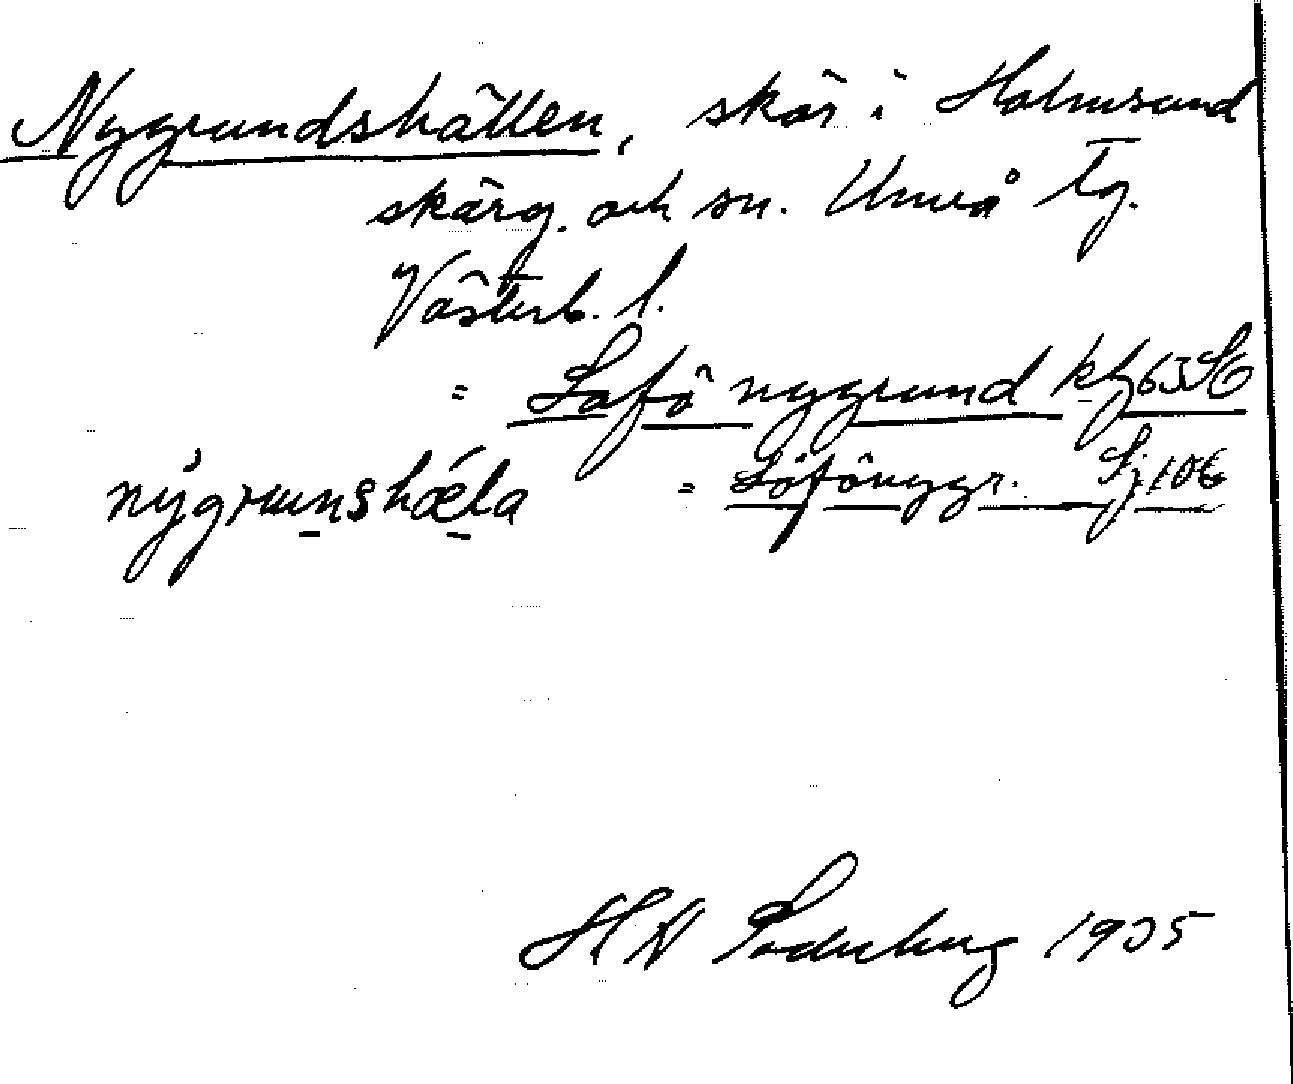 Nygrundshällen, skär i Holmsund
skärg. och sn. Umeå tg.
Västerb. l.
= Lofö nygrund kf 63 SÖ
nygrunshæla = Löfönygr. Sj. 106
HN Söderberg 1935